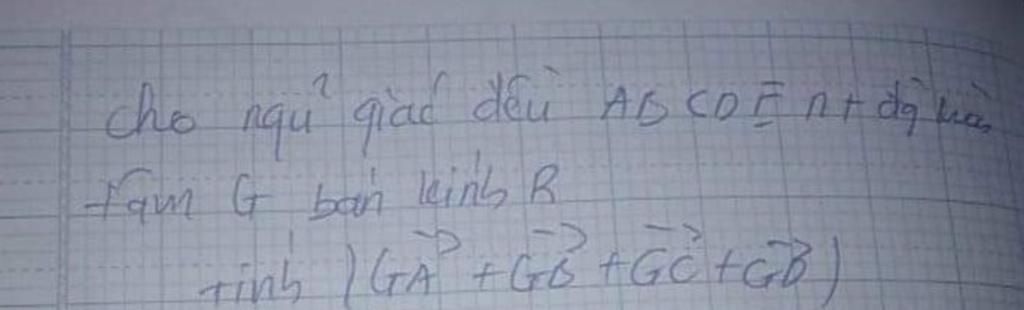 cho ngũ giác đều ABCDE nt đg tròn
tâm G bán kính R
tính |GA + GB + GC + GD|